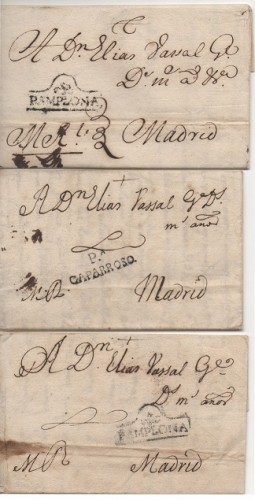 A Dn. Elias Vassal Ge.
PAMPLONA
Madrid
A Dn Elias Vassal Ge Ds.
ms. años
Pª
CAPARROSO.
M. R. Madrid
A Dn Elias Vassal Ge.
Ds. ms. años
PAMPLONA
M R Madrid